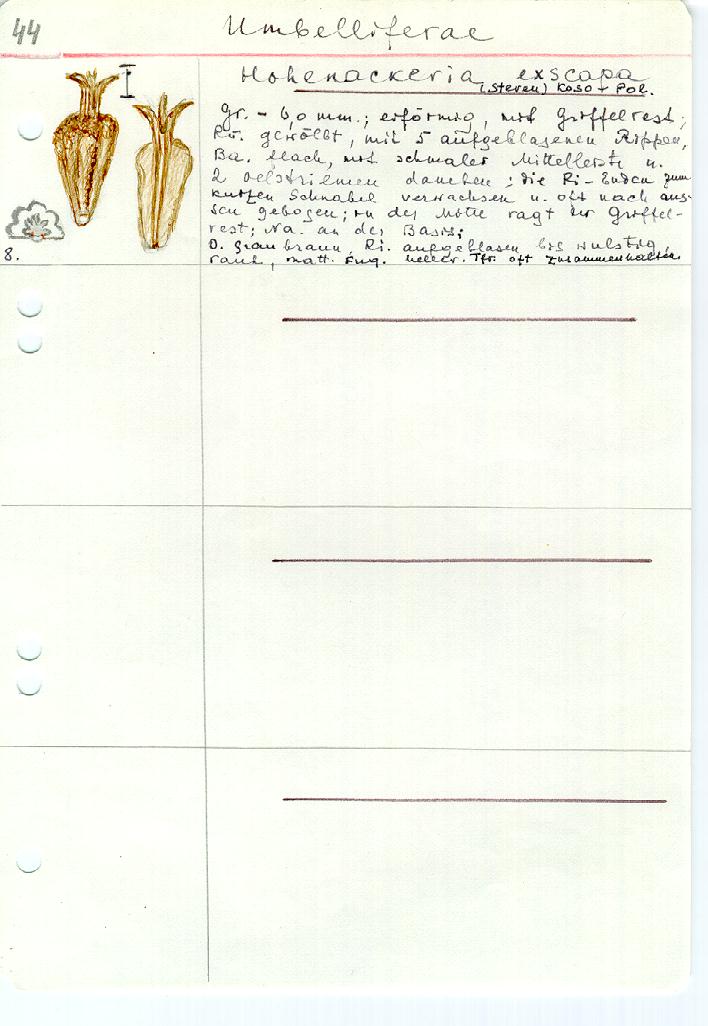 44
Umbelliferae
Hohenackeria exscapa
(Steven) Koso - Pol.
gr. - 6,0 mm.; eiförmig, mit Griffelrest;
Rü. gewölbt, mit 5 aufgeblasenen Rippen,
Ba. flach, mit schmaler Mittelleiste u.
2 Oelstriemen daneben; die Ri-Enden zum
kurzen Schnabel verwachsen u. oft nach aus-
sen gebogen; in der Mitte ragt der Griffel-
rest; Na. an der Basis;
O. graubraun, Ri. aufgeblasen bis wulstig,
rauh, matt. Fug. heller. Tfr. oft zusammenhaltend.
8.